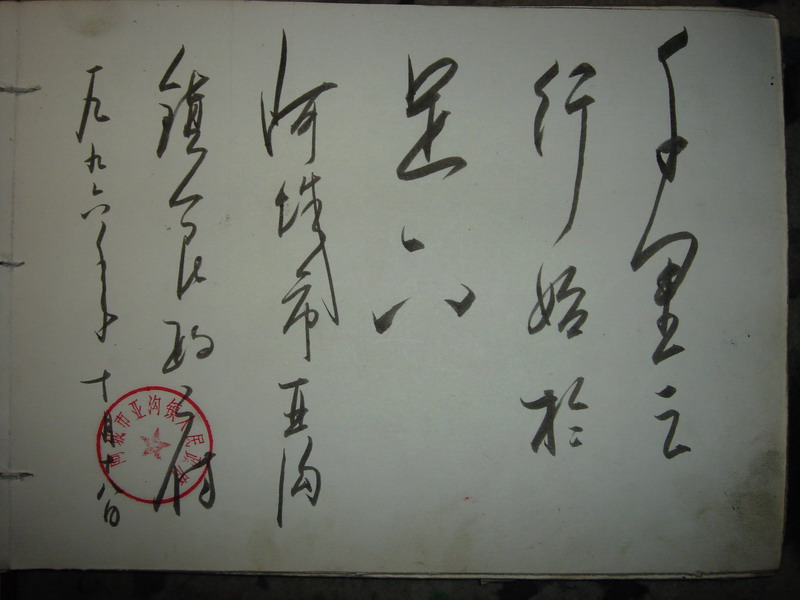 千里之
行始於
足下
阿城市亚沟
鎮人民政府
一九九六年十月十八日
阿城市亚沟镇人民政府